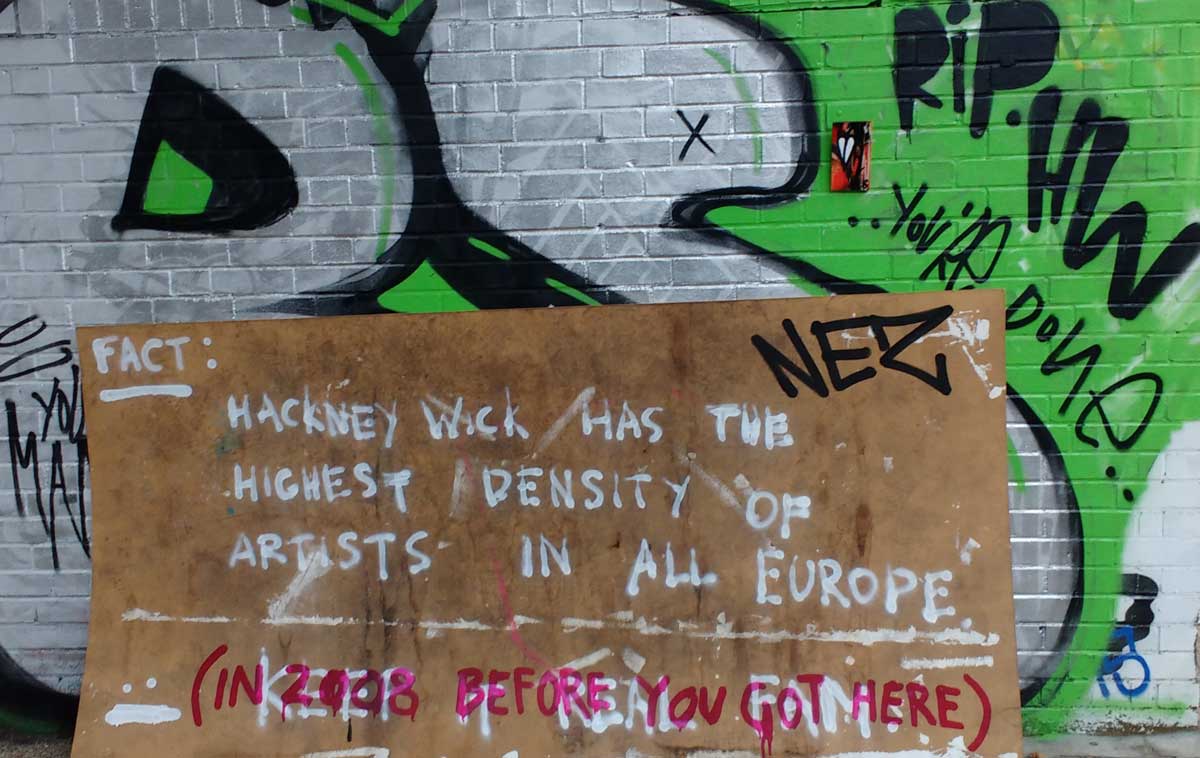 RIP.
HW
NEZ
FACT:
HACKNEY WICK HAS THE
HIGHEST DENSITY OF
ARTISTS IN ALL EUROPE
(IN 2008 BEFORE YOU GOT HERE)
YOU